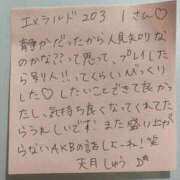 エメラルド203 Iさん♡
静かだったから人見知りなの
かな??って思って、プレイした
ら別人!!ってくらいびっくり
した♡したいことできて良かっ
たし、気持ち良くなってくれてた
らうれしいです!また盛り上が
らないAKBの話しよーね!笑
天月しゅう